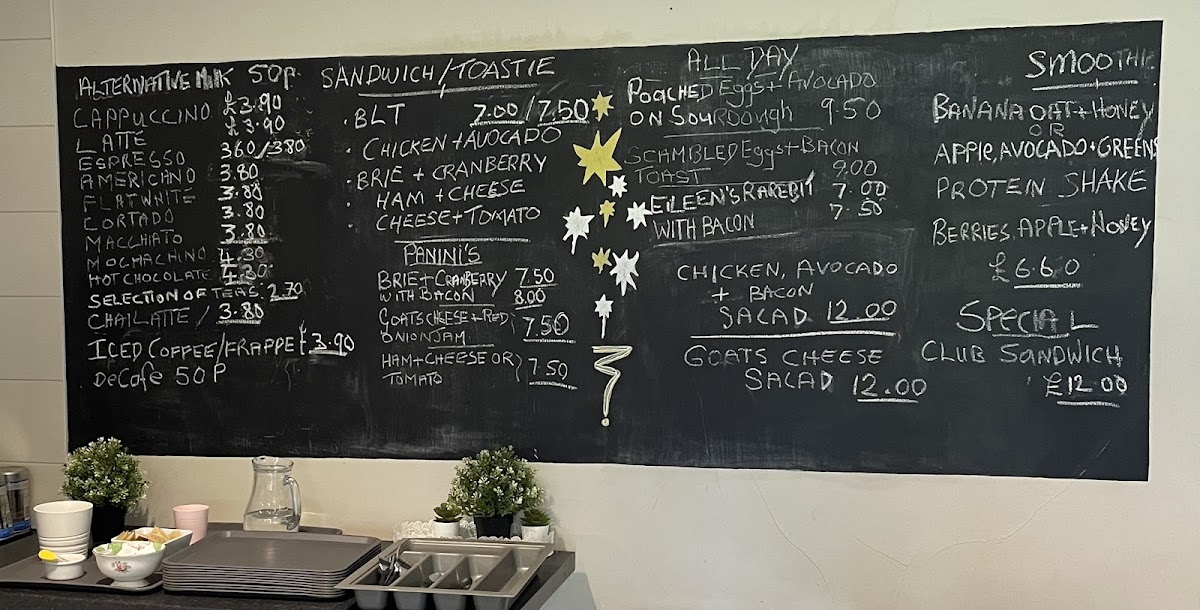 ALTERNATIVE MILK 50P.
CAPPUCCINO £3.90
LATTE £3.90
ESPRESSO 360/380
AMERICANO 3.80
FLATWHITE 3.80
CORTADO 3.80
MACCHIATO 3.80
MOCHACHINO 4.30
HOT CHOCOLATE 4.30
SELECTION OF TEAS. 2.70
CHAI LATTE / 3.80
ICED COFFEE/FRAPPE £3.90
DeCafe 50P
SANDWICH/TOASTIE
· BLT 7.00/7.50
· CHICKEN + AVOCADO
· BRIE + CRANBERRY
· HAM + CHEESE
· CHEESE + TOMATO
PANINI'S
BRIE + CRANBERRY 7.50
WITH BACON 8.00
GOATS CHEESE + RED
ONION JAM 7.50
HAM + CHEESE OR
TOMATO 7.50
ALL DAY
POACHED Eggs + AVOCADO
ON SOURDOUGH 9.50
SCAMBLED Eggs + BACON
TOAST 9.00
EILEEN'S RAREBIT 7.00
WITH BACON 7.50
CHICKEN, AVOCADO
+ BACON
SALAD 12.00
GOATS CHEESE
SALAD 12.00
SMOOTHIE
BANANA OAT + HONEY
OR
APPLE, AVOCADO + GREENS
PROTEIN SHAKE
BERRIES, APPLE + HONEY
£6.60
SPECIAL
CLUB SANDWICH
£12.00